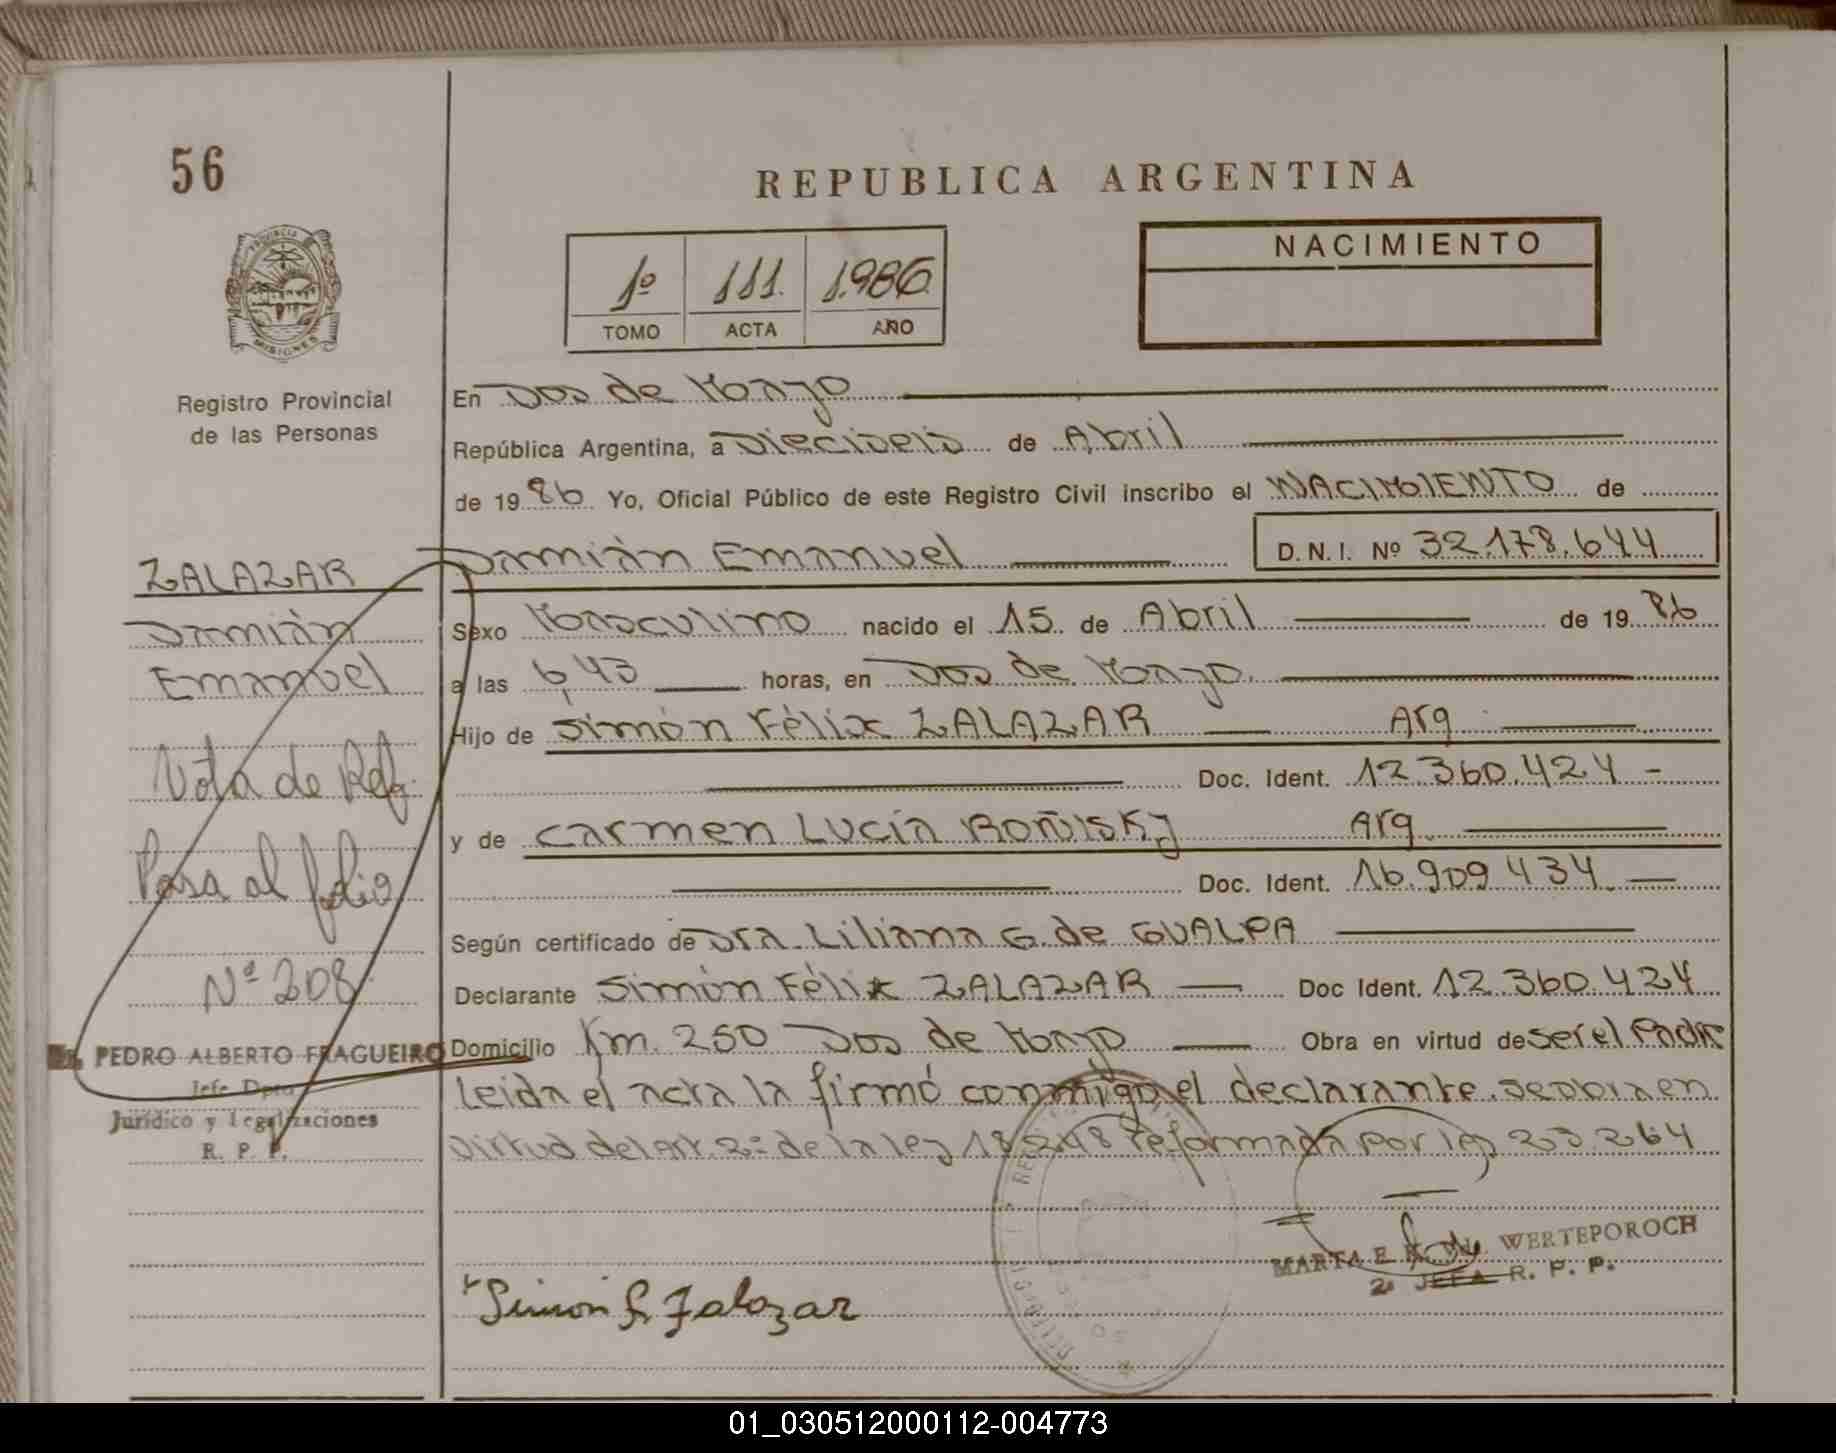 56
REPUBLICA ARGENTINA
PROVINCIA
MISIONES
1º 111. 1.986
TOMO ACTA AÑO
NACIMIENTO
Registro Provincial
de las Personas
En Dos de Mayo
República Argentina, a Dieciseis de Abril
de 19 86 Yo, Oficial Público de este Registro Civil inscribo el NACIMIENTO de
Damián Emanuel D.N.I. Nº 32.178.644
Sexo Masculino nacido el 15 de Abril de 19 86
a las 6,43 horas, en Dos de Mayo
Hijo de Simón Félix ZALAZAR Arg
Doc. Ident. 12.360.424 -
y de Carmen Lucía BOÑISKy Arg
Doc. Ident. 16.909.434
Según certificado de Dra. Liliana G. de GUALPA
Declarante Simón Félix ZALAZAR Doc Ident. 12.360.424
Domicilio Km. 250 Dos de Mayo Obra en virtud de ser el Padre
Leida el acta la firmó conmigo el declarante. Se obra en
virtud del Art. 2º de la ley 18.248 reformada por ley 23.264
ZALAZAR
Damián
Emanuel
Nota de Ref.
Pasa al folio
Nº 208
PEDRO ALBERTO FRAGUEIRO
Jefe Dpto
Jurídico y Legalizaciones
R. P. P.
Simón F. Zalazar
MARTA E. WERTEPOROCH
2ª JEFA R. P. P.
01_030512000112-004773